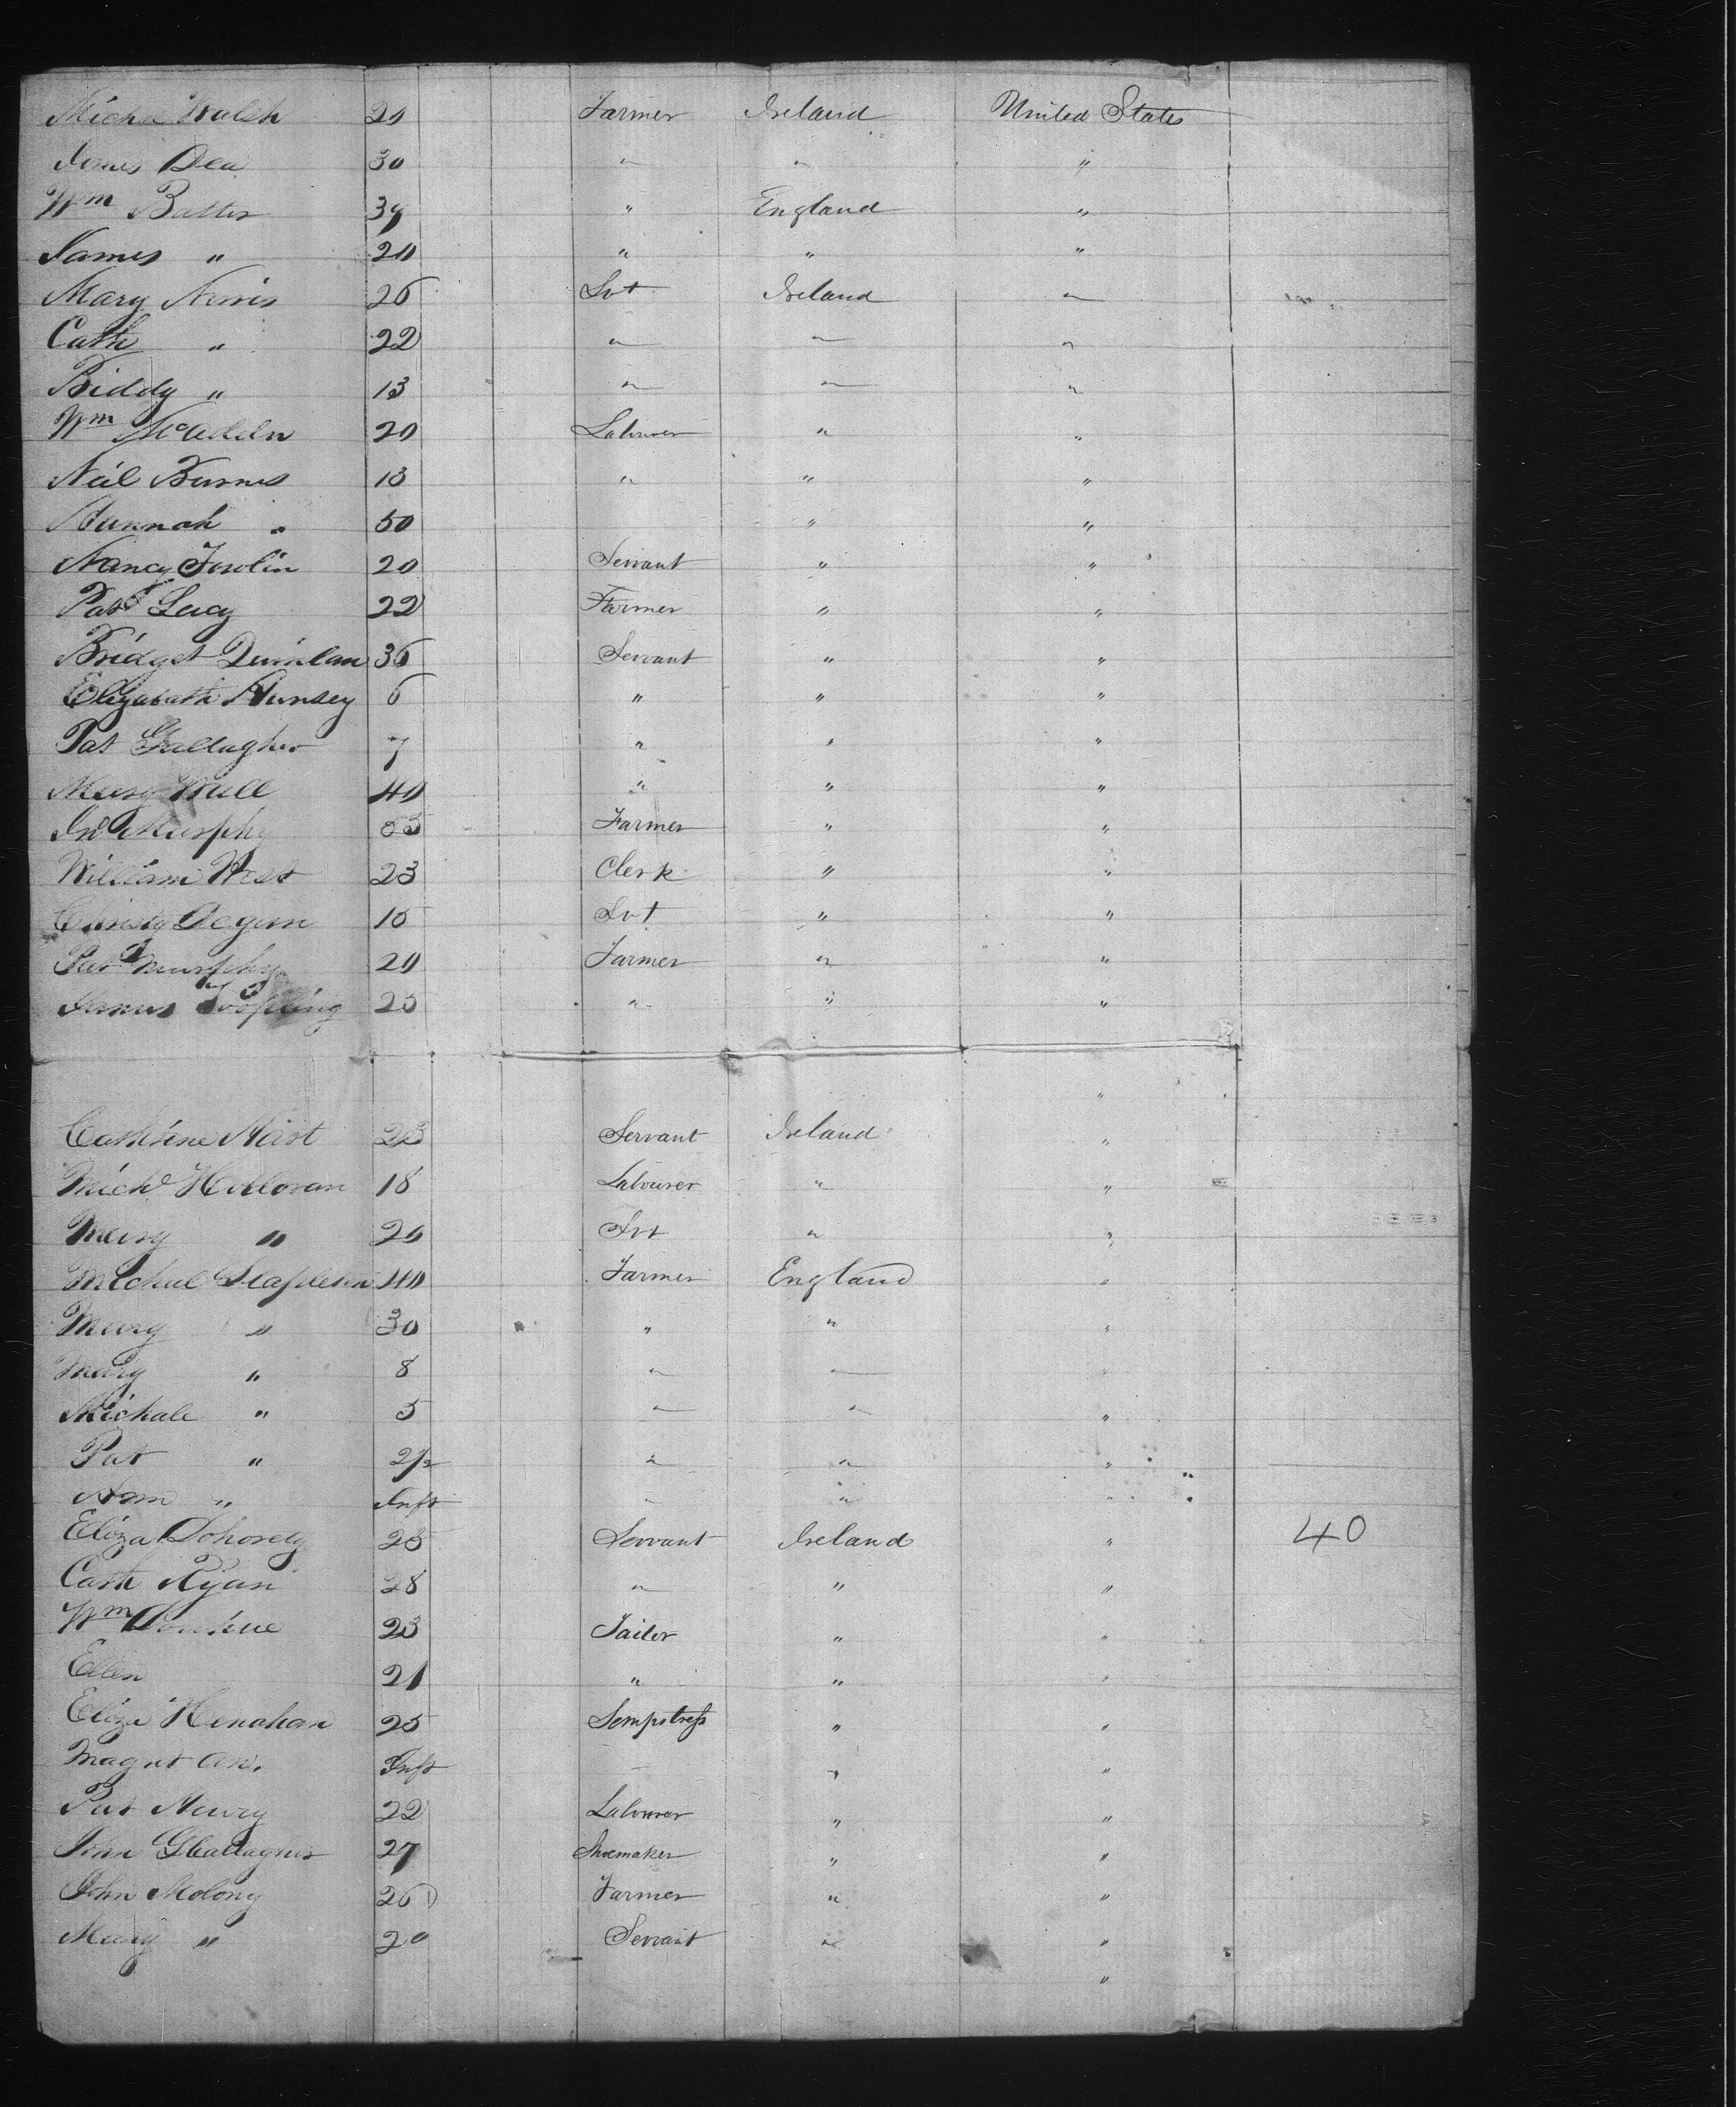 Walsh 20 Farmer Ireland United States
James Dea 30 " " "
Wm Butler 39 " England "
James " 20 " " "
Mary Norris 26 Svt Ireland "
Cath " 22 " " "
Biddy " 13 " " "
Wm 20 Labourer " "
Neil Burnes 13 " " "
Hannah " 50 " "
Nancy 20 Servant " "
Patk Lucy 22 Farmer " "
Bridget Quinlan 36 Servant " "
Elizabeth 6 " " "
Pat Gallagher 7 " " "
Mary 40 " " "
Murphy Farmer " "
William West 23 Clerk " "
Christy Degan 15 Svt " "
Patk Murphy 20 Farmer " "
James 25 " " "
"
Cathrine 23 Servant Ireland "
Michl Holloran 18 Labourer " "
Mary " 20 Svt " "
Michal Stapleton 40 Farmer England "
Mary " 30 " " "
Mary " 8 " " "
Michale " 5 " " "
Pat " 2/2 " " "
" Inft " " "
Eliza Dohorety 25 Servant Ireland " 40
Cath Ryan 28 " " "
Wm Donhue 23 Tailor " "
Ellen 21 " " "
Eliza Henahan 25 Sempstress " "
Magret an. Inft " "
Pat 22 Labourer " "
27 Shoemaker " "
John Molony 26 Farmer " "
Mary " 20 Servant " "
"